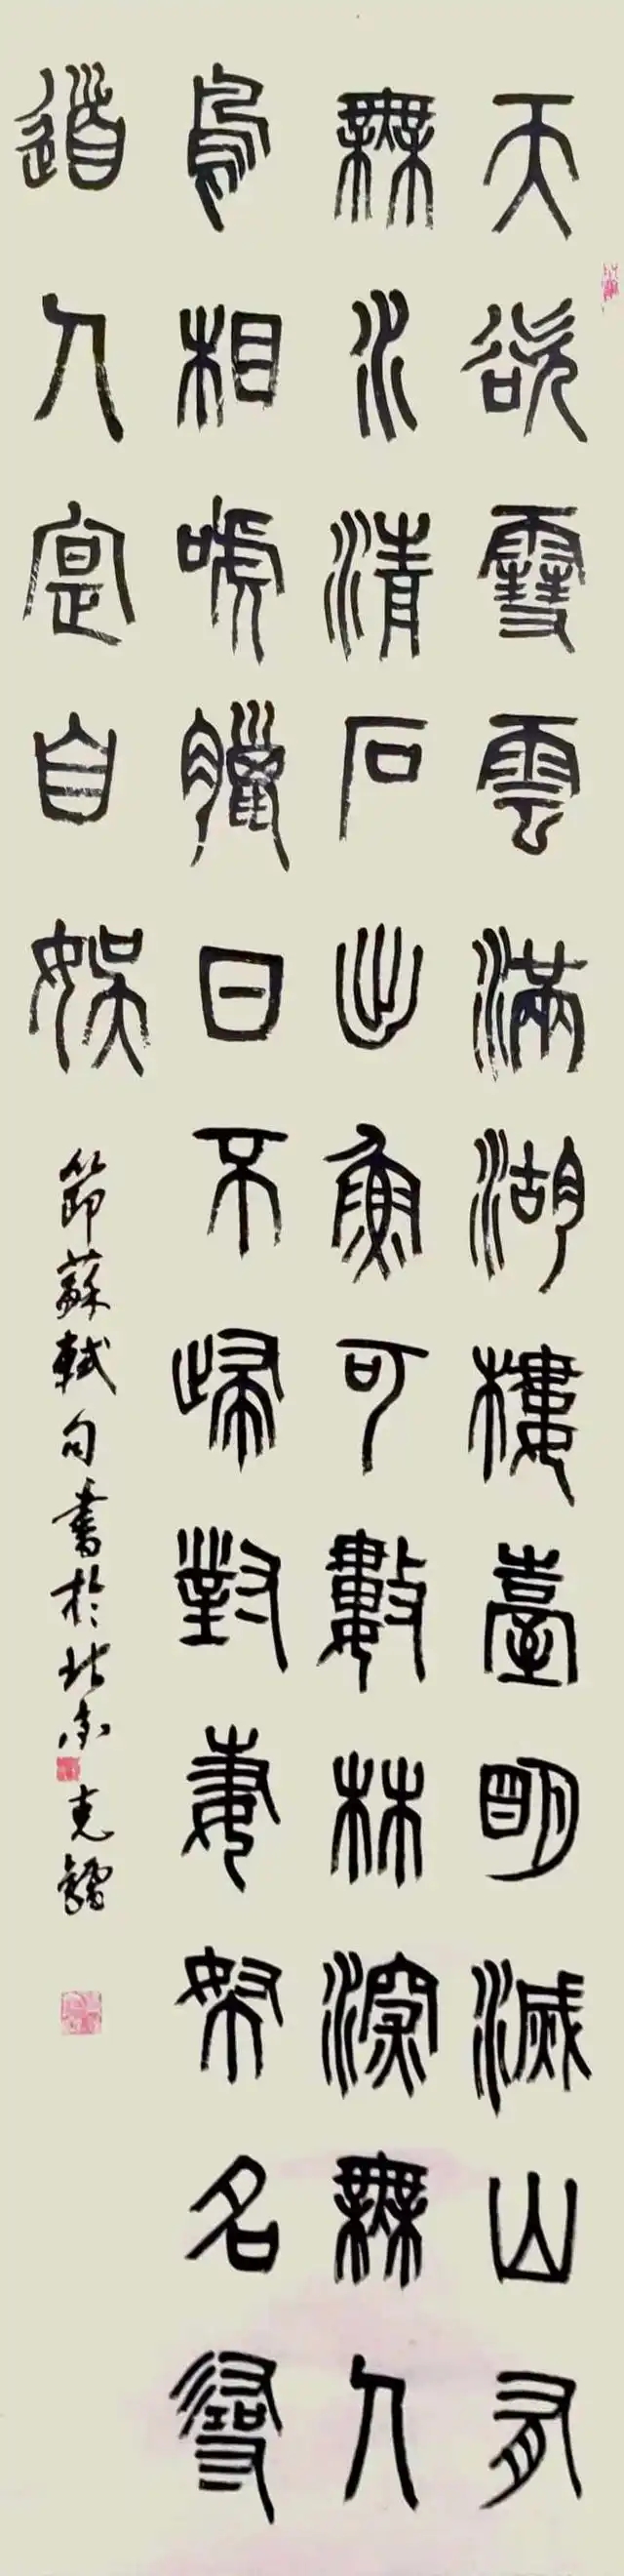 天欲雪雲滿湖樓臺明滅山有
無水清石出魚可數林深無人
鳥相嘑臘日不歸對妻孥名尋
道人寔自娛
節蘇軾句書於北京克